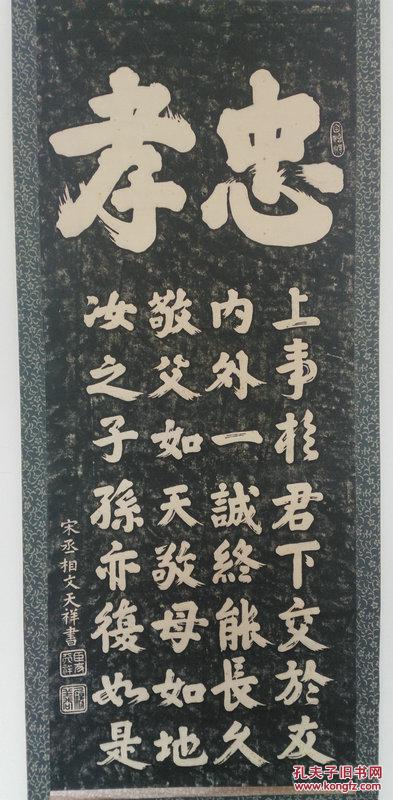 忠孝
上事於君下交於友
内外一誠終能長久
敬父如天敬母如地
汝之子孫亦復如是
宋丞相文天祥書
孔夫子旧书网
www.kongfz.com